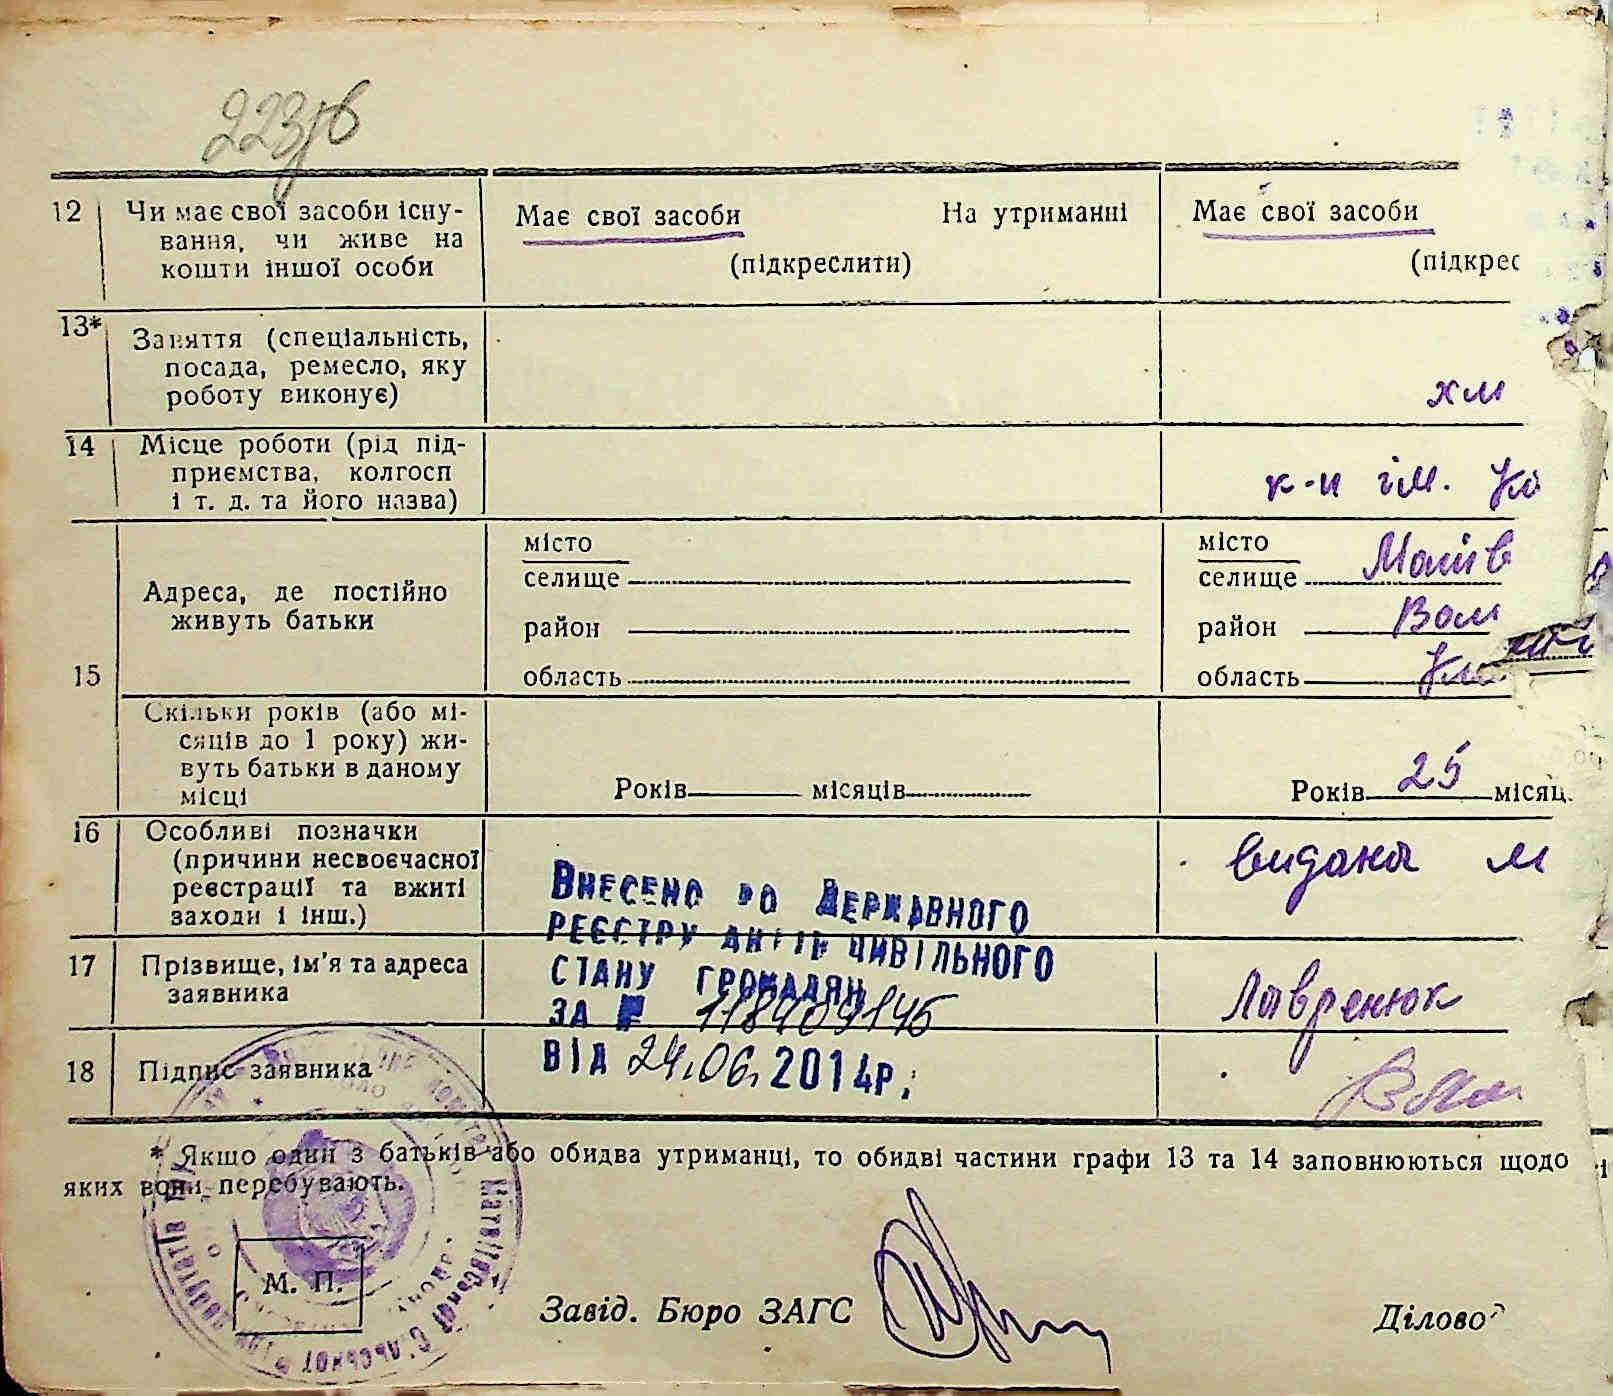 223зв
12 Чи має свої засоби існу- Має свої засоби На утриманні Має свої засоби
вання, чи живе на (підкреслити) (підкрес
кошти іншої особи
13* Заняття (спеціальність,
посада, ремесло, яку
роботу виконує)
14 Місце роботи (рід під-
приємства, колгосп к-п ім.
і т. д. та його назва)
місто місто
селище селище
Адреса, де постійно
живуть батьки район район
15 область область
Скільки років (або мі-
сяців до 1 року) жи-
вуть батьки в даному
місці Років місяців Років 25 місяц
16 Особливі позначки видана
(причини несвоєчасної
реєстрації та вжиті
заходи і інш.)
Внесено до Державного
реєстру актів цивільного
17 Прізвище, ім'я та адреса стану громадян Лавренюк
заявника за № 118409145
18 Підпис заявника від 24.06.2014р.
* Якщо один з батьків або обидва утриманці, то обидві частини графи 13 та 14 заповнюються щодо
яких вони перебувають.
М. П.
Завід. Бюро ЗАГС Ділово